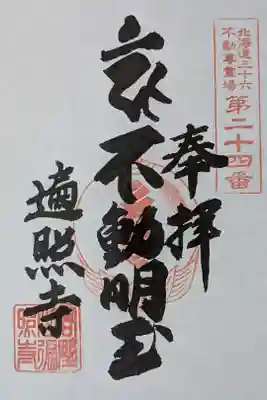 北海道三十六
不動尊霊場
第二十四番
奉拝
不動明王
遍照寺